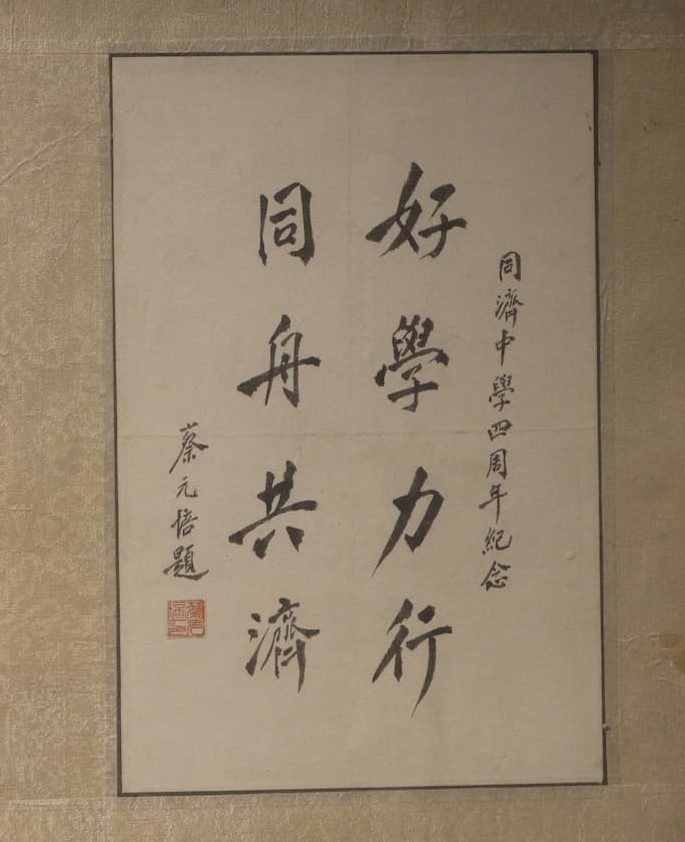 同濟中學四周年紀念
好學力行
同舟共濟
蔡元培題